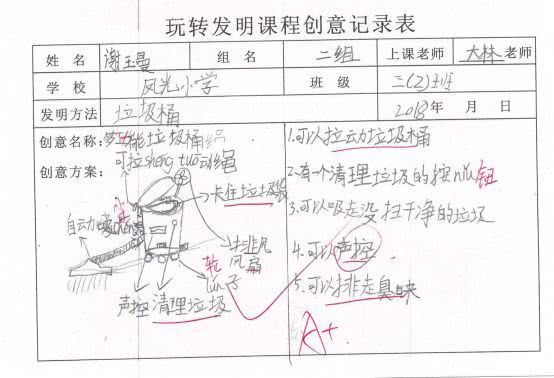 玩转发明课程创意记录表
姓 名 谢玉曼 组 名 二组 上课老师 大林老师
学 校 凤光小学 班 级 三(2)班
发明方法 垃圾桶 2018年 月 日
创意名称: 能垃圾桶
创意方案:
可拉sheng tuo动绳
卡住垃圾袋
自动
排风
风扇
轮
lun子
声控清理垃圾
1.可以拉动垃圾桶
2.有一个清理垃圾的按niu 钮
3.可以吸走没扫干净的垃圾
4.可以声控
5.可以排走臭味
A+